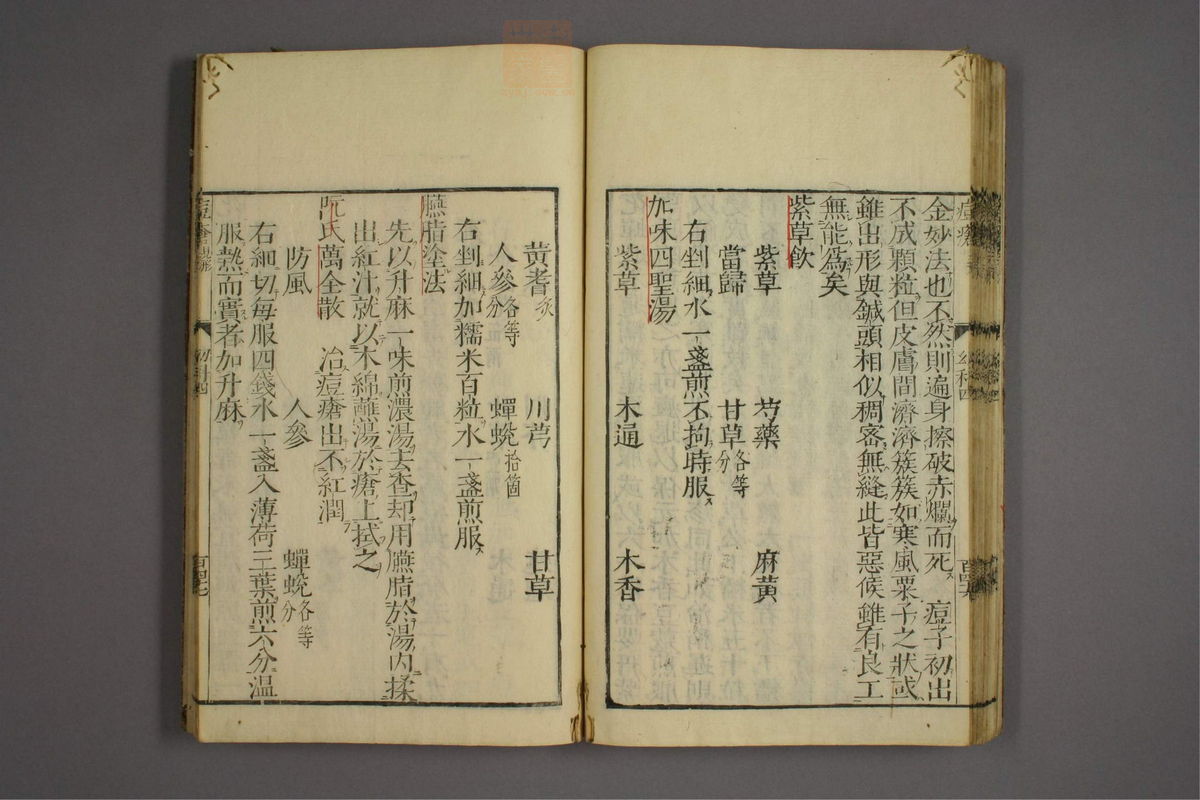 痘瘡
金妙法也不然則遍身擦破赤爛而死　痘子初出
不成顆粒但皮膚間濟濟簇簇如寒風粟子之狀或
雖出形與鍼頭相似稠密無縫此皆惡候雖有良工
無能爲矣
紫草飲
紫草　芍藥　麻黃
當歸　甘草各等分
右剉細水一盞煎不拘時服
加味四聖湯
紫草　木通　木香
黃耆炙　川芎　甘草
人參各等分　蟬蛻拾箇
右剉細加糯米百粒水一盞煎服
臙脂塗法
先以升麻一味煎濃湯去查却用臙脂於湯內揉
出紅汁就以木綿蘸湯於瘡上拭之
阮氏萬全散　治痘瘡出不紅潤
防風　人參　蟬蛻各等分
右細切每服四錢水一盞入薄荷三葉煎六分溫
服熱而實者加升麻